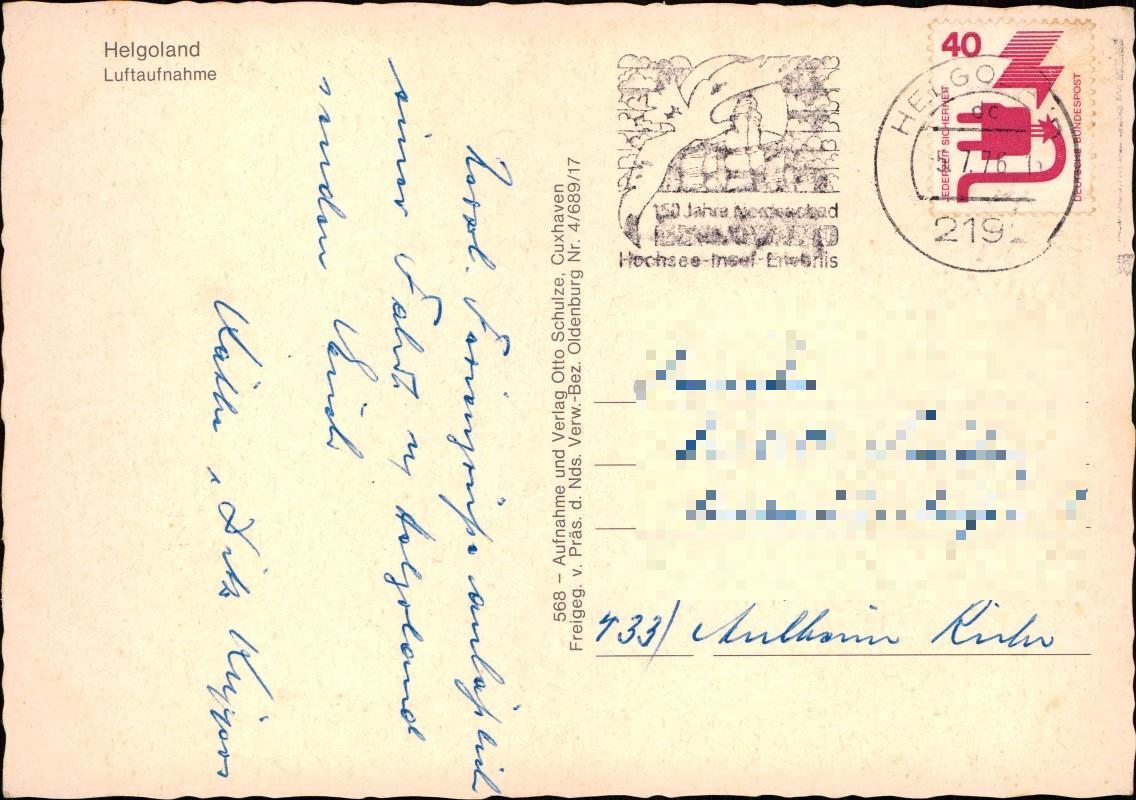 Helgoland
Luftaufnahme
Herzl. Feriengrüße anläßlich
einer Fahrt n. Helgoland
senden Euch
Käthe u. Fritz
568 – Aufnahme und Verlag Otto Schulze, Cuxhaven
Freigeg. v. Präs. d. Nds. Verw.-Bez. Oldenburg Nr. 4/689/17
150 Jahre Nordseebad
HELGOLAND
Hochsee-Insel-Erlebnis
HELGO
7.76
219
40
JEDERZEIT SICHERHEIT
DEUTSCHE BUNDESPOST
433/ Mülheim Ruhr